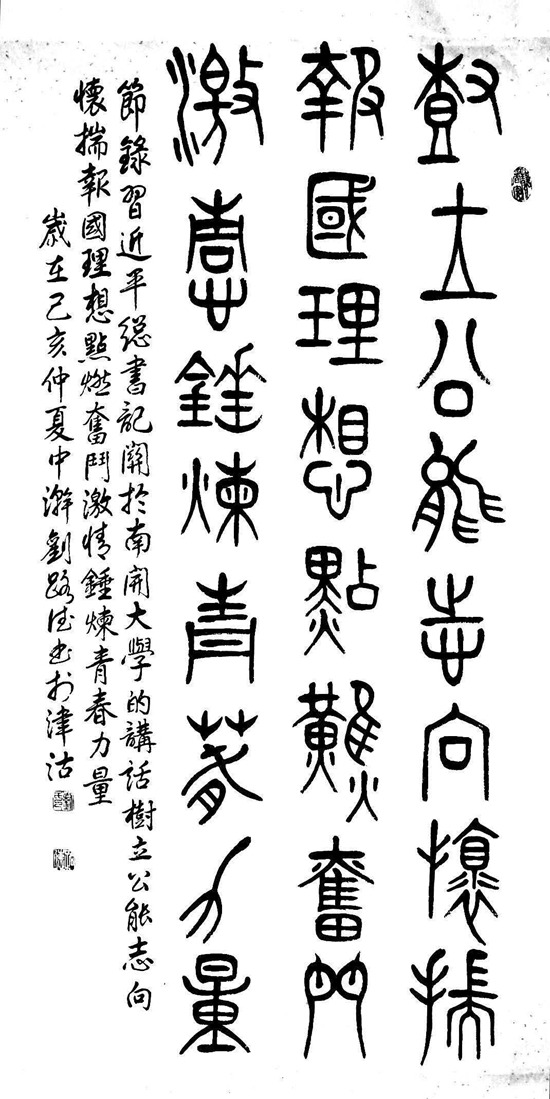 尌立公能志向懷揣
報國理想點難奮鬥
激情錘煉青春力量
節錄習近平總書記關於南開大學的講話樹立公能志向
懷揣報國理想點燃奮鬥激情錘煉青春力量
歲在己亥仲夏中澣劉路德書於津沽